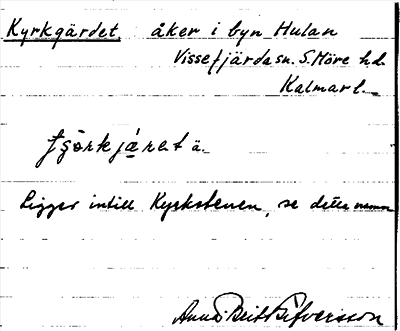 Kyrkgärdet åker i byn Hulan
Vissefjärda sn. S. Möre hd.
Kalmar l.
ä.
Ligger intill Kyrkstenen, se detta namn
Anna-Britt Sifversson